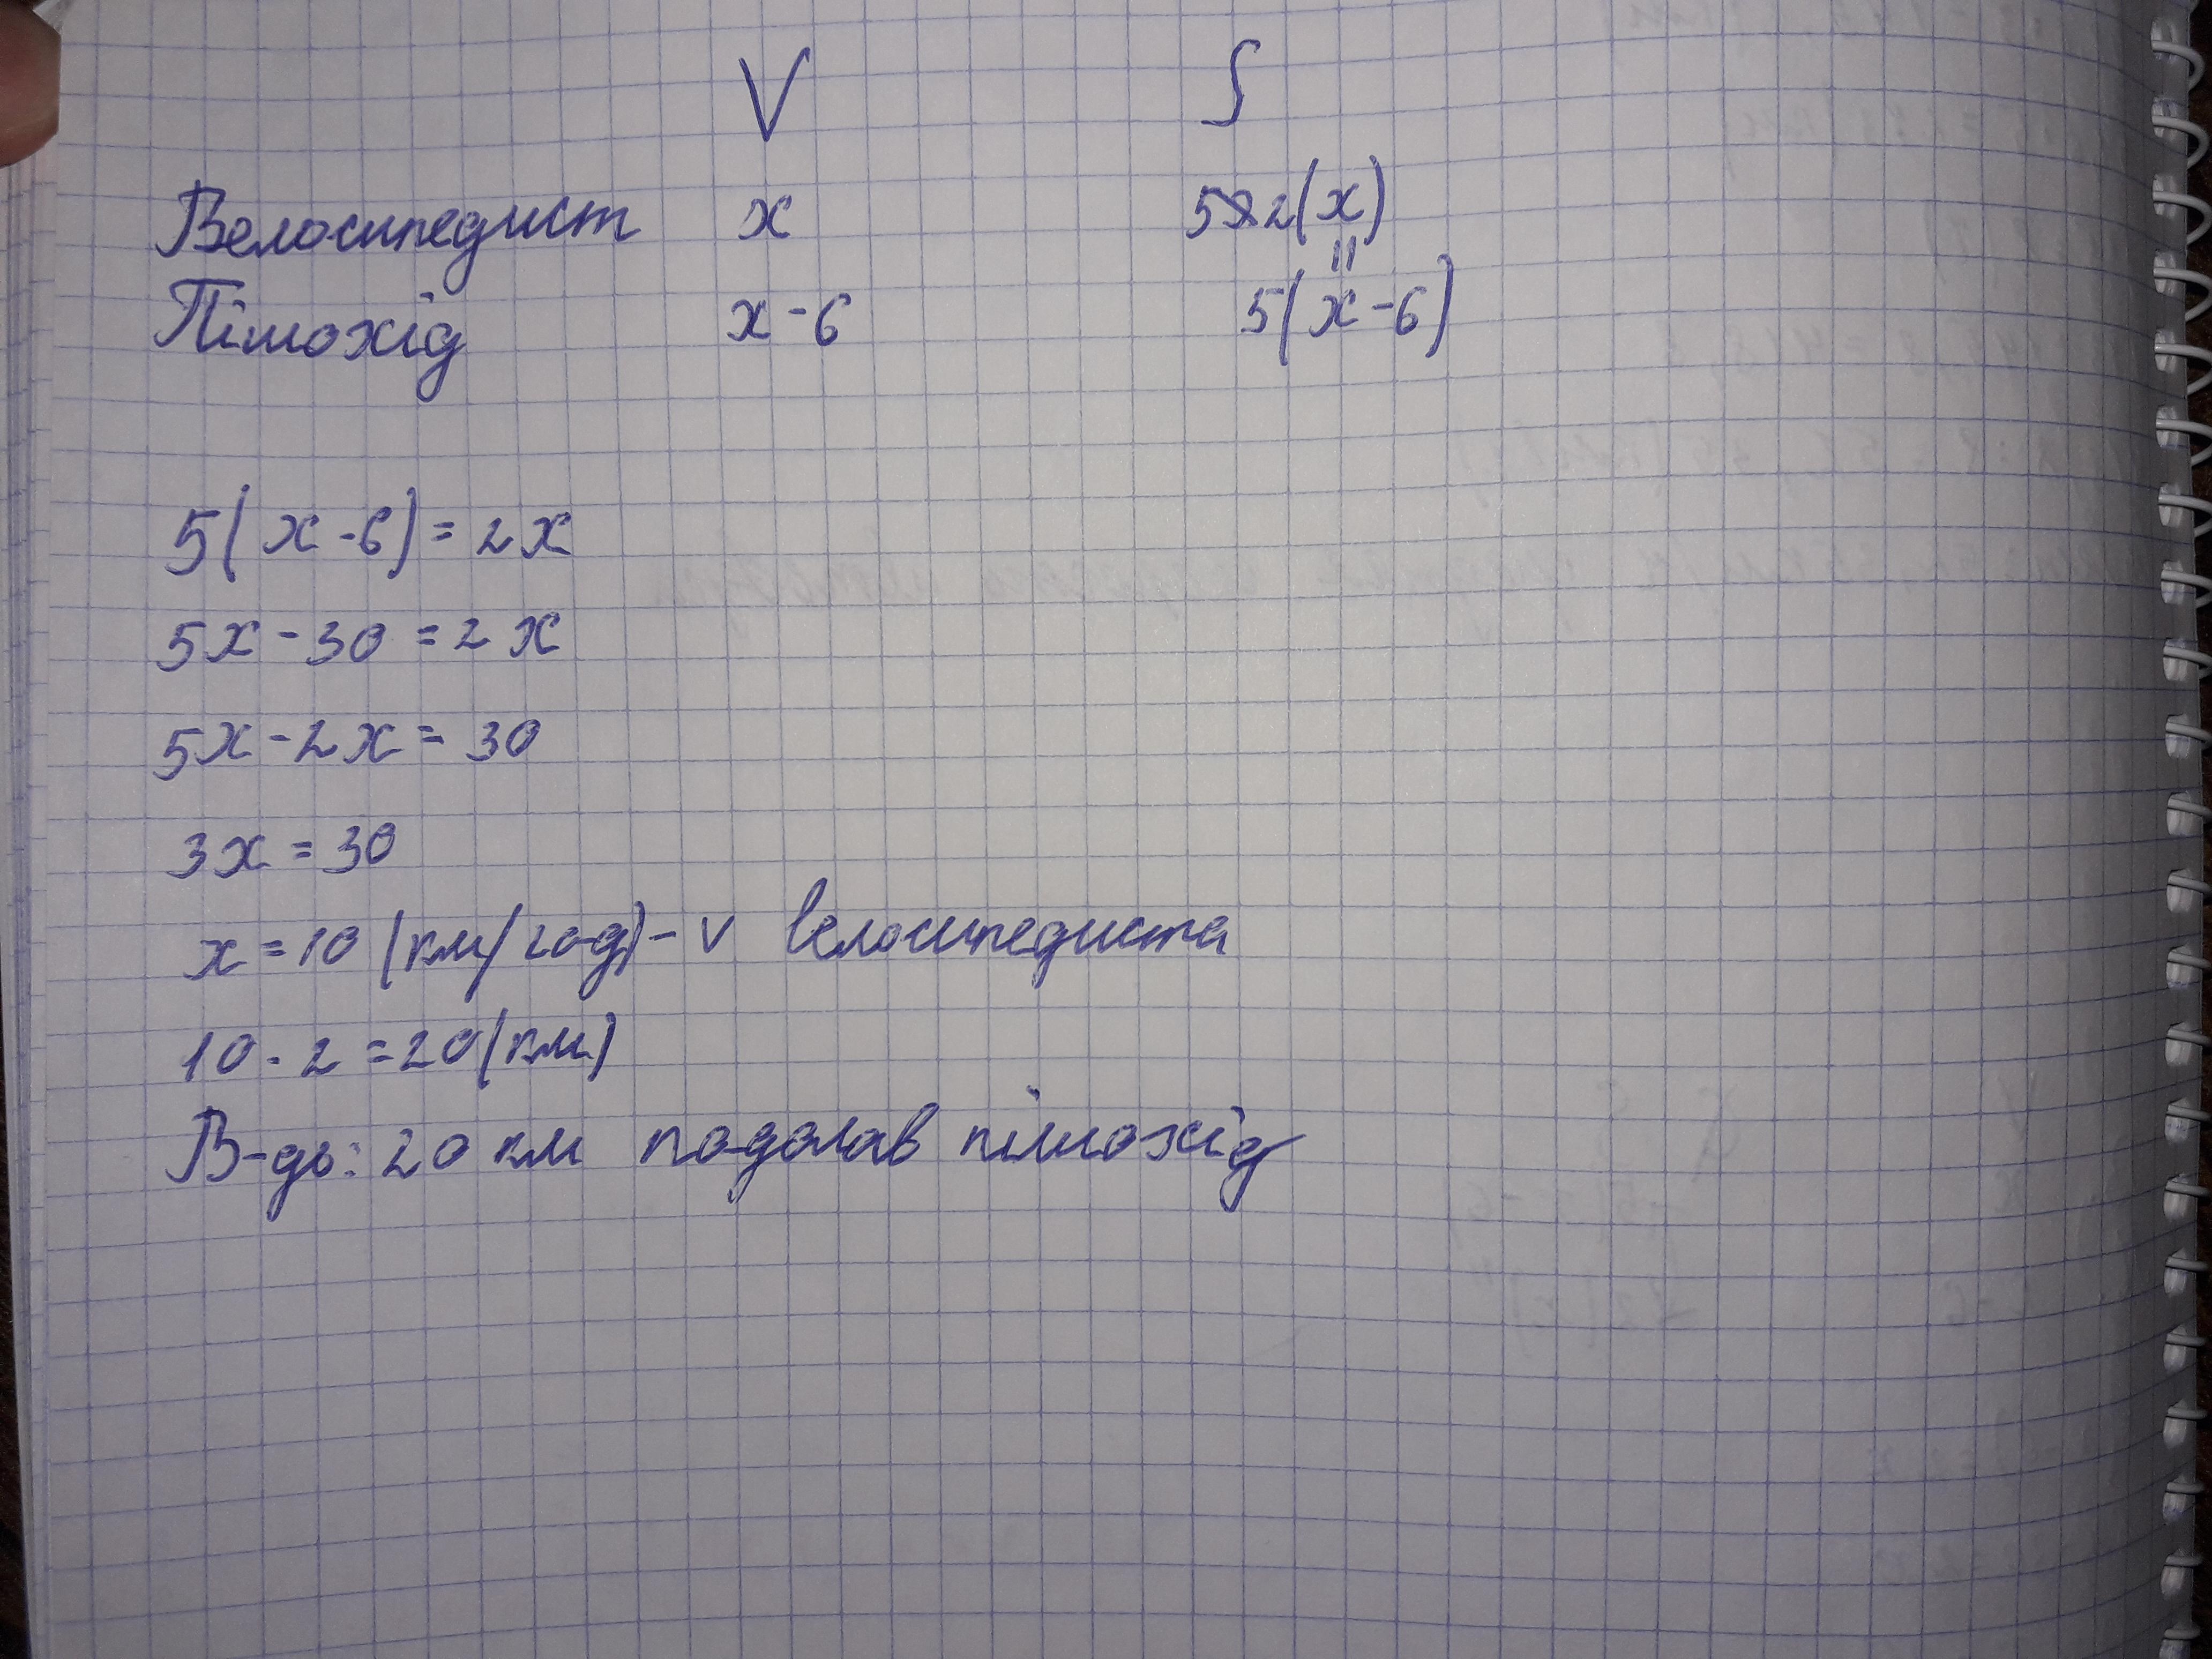 V S
Велосипедист x 5x2(x)
=
Пішохід x-6 5(x-6)
5(x-6)=2x
5x-30=2x
5x-2x=30
3x=30
x=10(км/год)-v велосипедиста
10·2=20(км)
В-дь: 20 км подолав пішохід